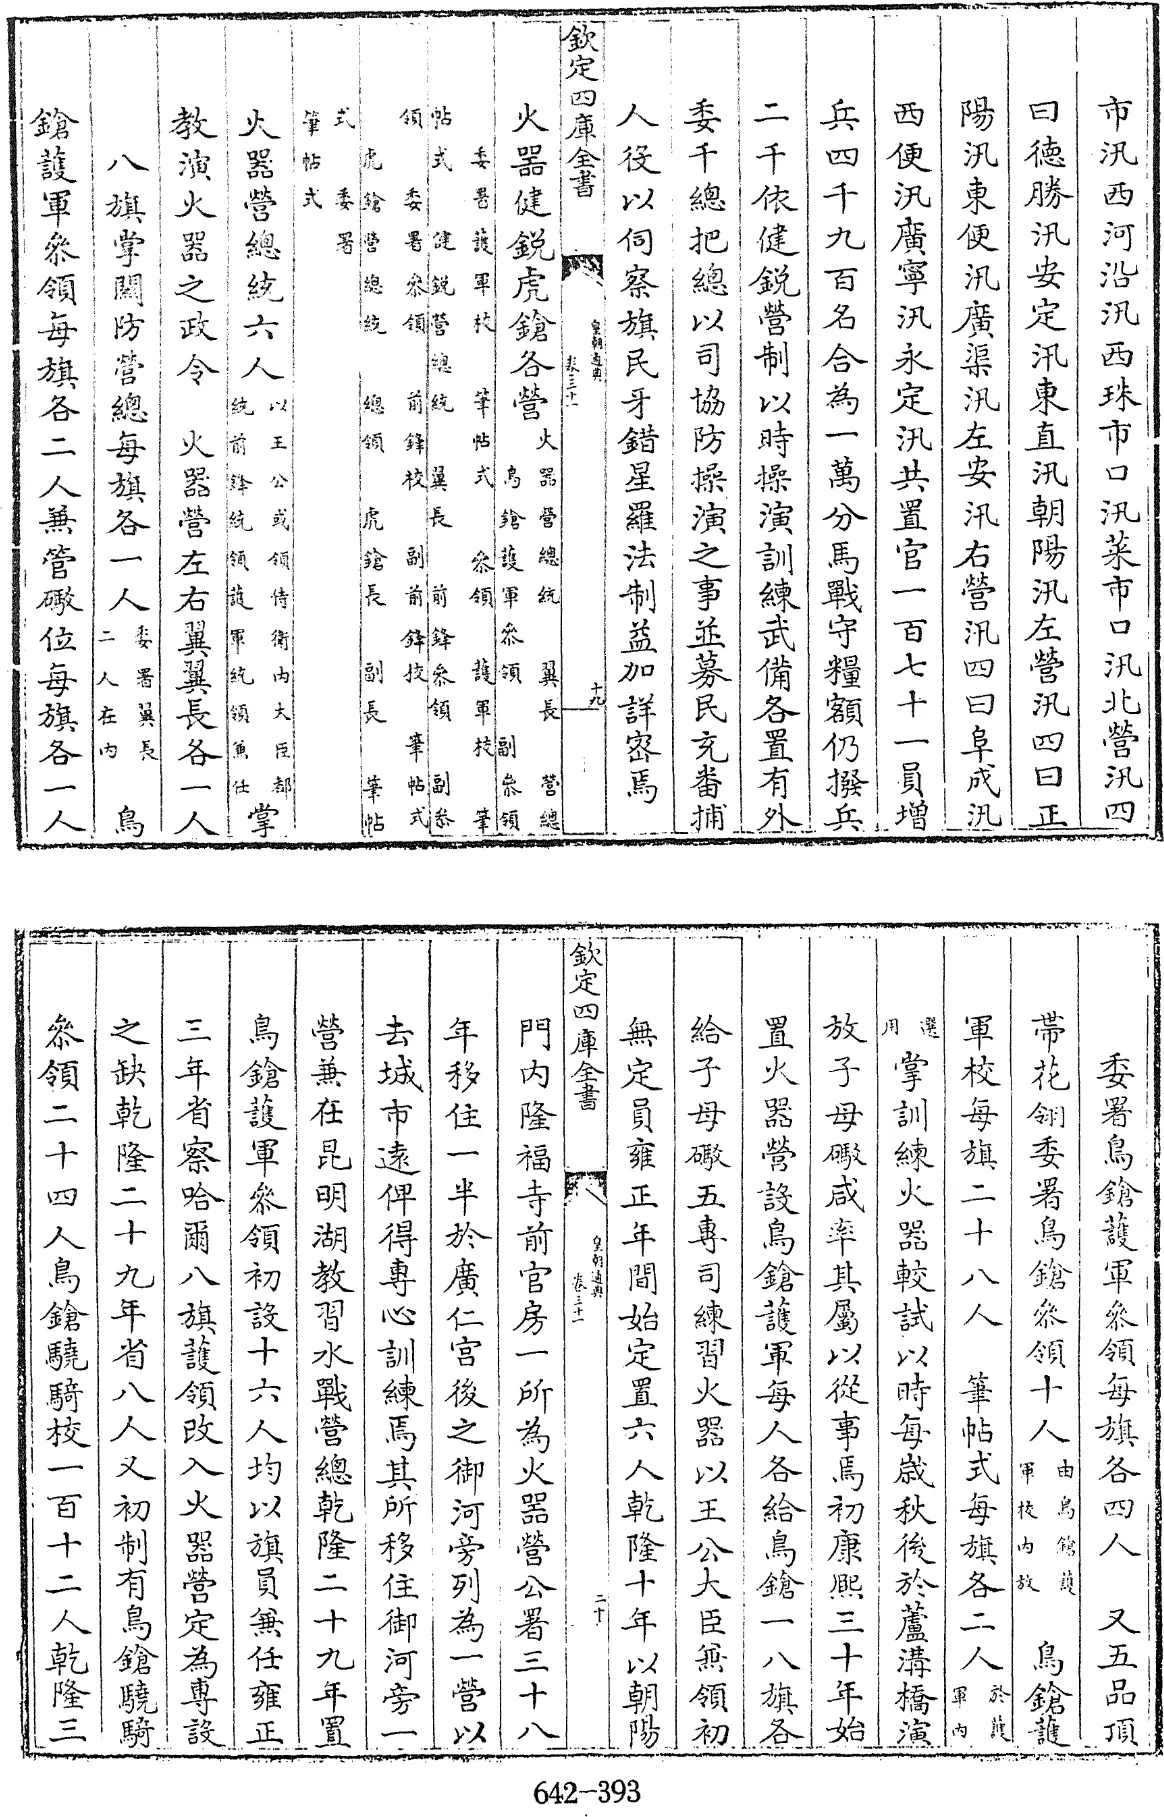 市汛西河沿汛西珠市口汛菜市口汛北營汛四
曰德勝汛安定汛東直汛朝陽汛左營汛四曰正
陽汛東便汛廣渠汛左安汛右營汛四曰阜成汛
西便汛廣寧汛永定汛共置官一百七十一員增
兵四千九百名合為一萬分馬戰守糧額仍撥兵
二千依健銳營制以時操演訓練武備各置有外
委千總把總以司協防操演之事並募民充番捕
人役以伺察旗民牙錯星羅法制益加詳密焉
欽定四庫全書 皇朝通典 卷三十一 十九
火器健銳虎鎗各營 火器營總統 翼長 營總 鳥鎗護軍參領 副參領
委署護軍校 筆帖式 參領 護軍校 筆
帖式 健銳營總統 翼長 前鋒參領 副參
領 委署參領 前鋒校 副前鋒校 筆帖式
虎鎗營總統 總領 虎鎗長 副長 筆帖
式 委署
筆帖式
火器營總統六人 以王公或領侍衛內大臣都統前鋒統領護軍統領兼任 掌
教演火器之政令 火器營左右翼翼長各一人
八旗掌關防營總每旗各一人 委署翼長二人在內 鳥
鎗護軍參領每旗各二人兼管礮位每旗各一人
委署鳥鎗護軍參領每旗各四人 又五品頂
帶花翎委署鳥鎗參領十人 由鳥鎗護軍校內放 鳥鎗護
軍校每旗二十八人 筆帖式每旗各二人 於護軍內
選用 掌訓練火器較試以時每歲秋後於蘆溝橋演
放子母礮咸率其屬以從事焉初康熙三十年始
置火器營設鳥鎗護軍每人各給鳥鎗一八旗各
給子母礮五專司練習火器以王公大臣兼領初
無定員雍正年間始定置六人乾隆十年以朝陽
欽定四庫全書 皇朝通典 卷三十一 二十
門內隆福寺前官房一所為火器營公署三十八
年移住一半於廣仁宮後之御河旁列為一營以
去城市遠俾得專心訓練焉其所移住御河旁一
營兼在昆明湖教習水戰營總乾隆二十九年置
鳥鎗護軍參領初設十六人均以旗員兼任雍正
三年省察哈爾八旗護領改入火器營定為專設
之缺乾隆二十九年省八人又初制有鳥鎗驍騎
參領二十四人鳥鎗驍騎校一百十二人乾隆三
642-393